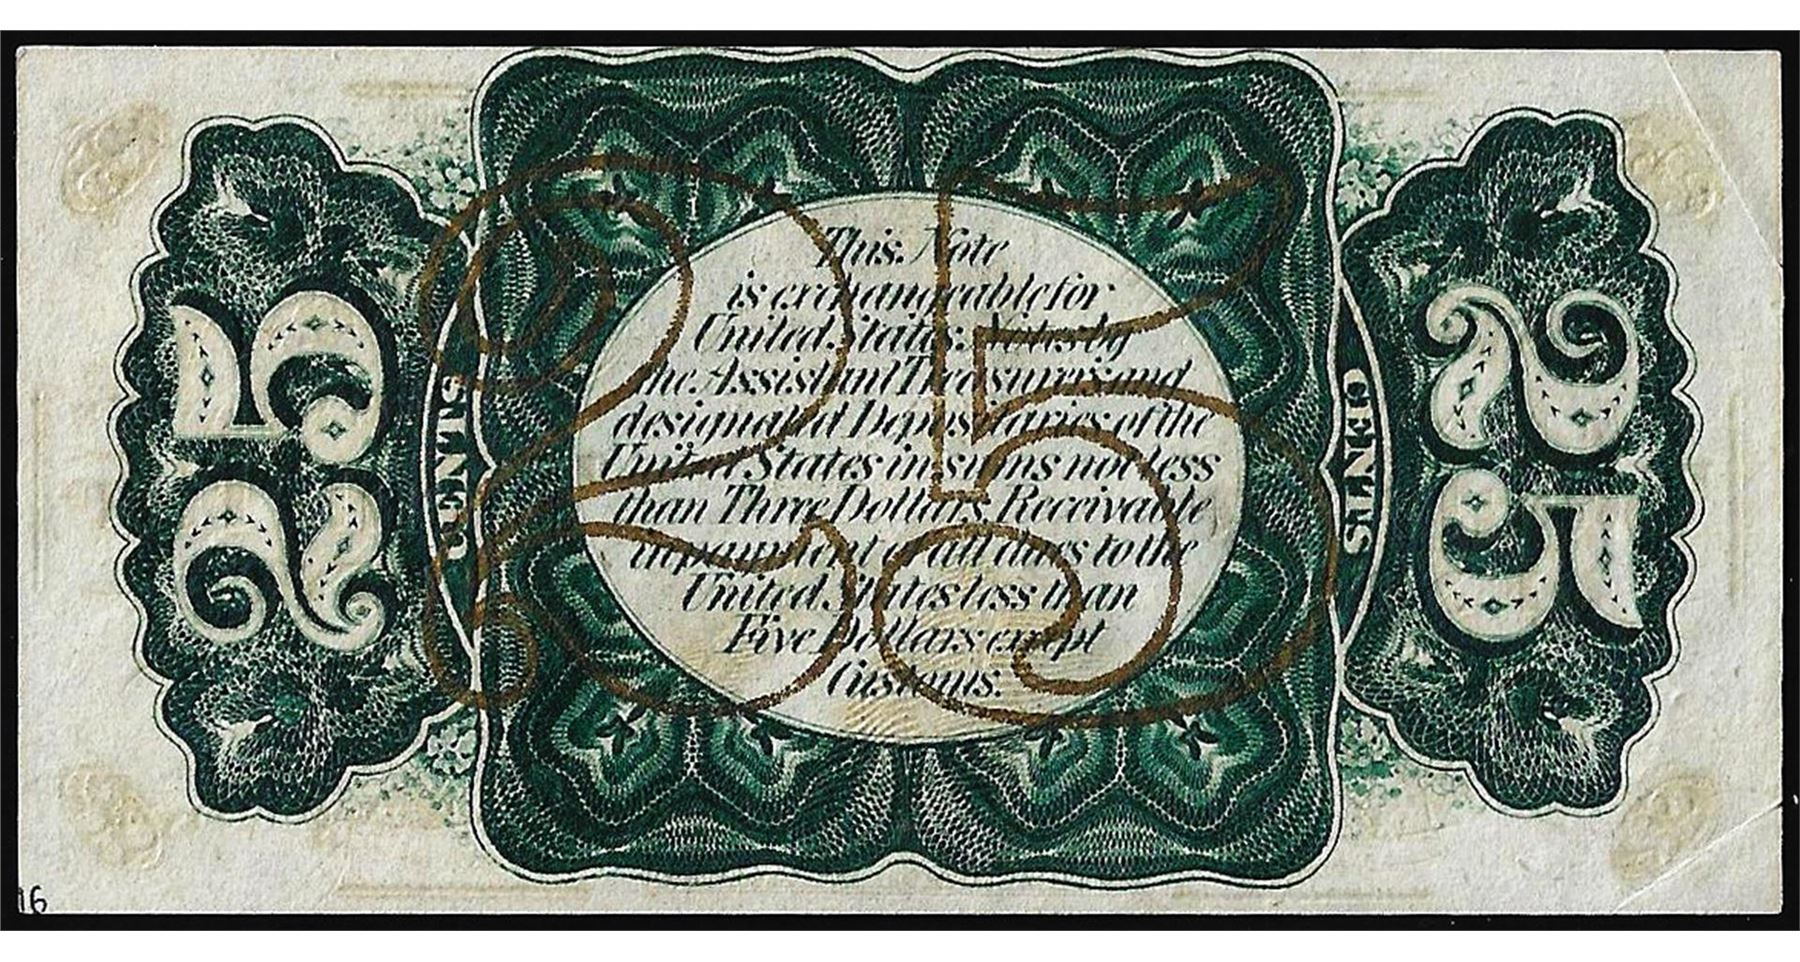 This Note
is exchangeable for
United States Notes by
the Assistant Treasurers and
designated Depositaries of the
United States in sums not less
than Three Dollars. Receivable
in payment of all dues to the
United States less than
Five Dollars except
Customs.
25
25
CENTS
25
CENTS
16